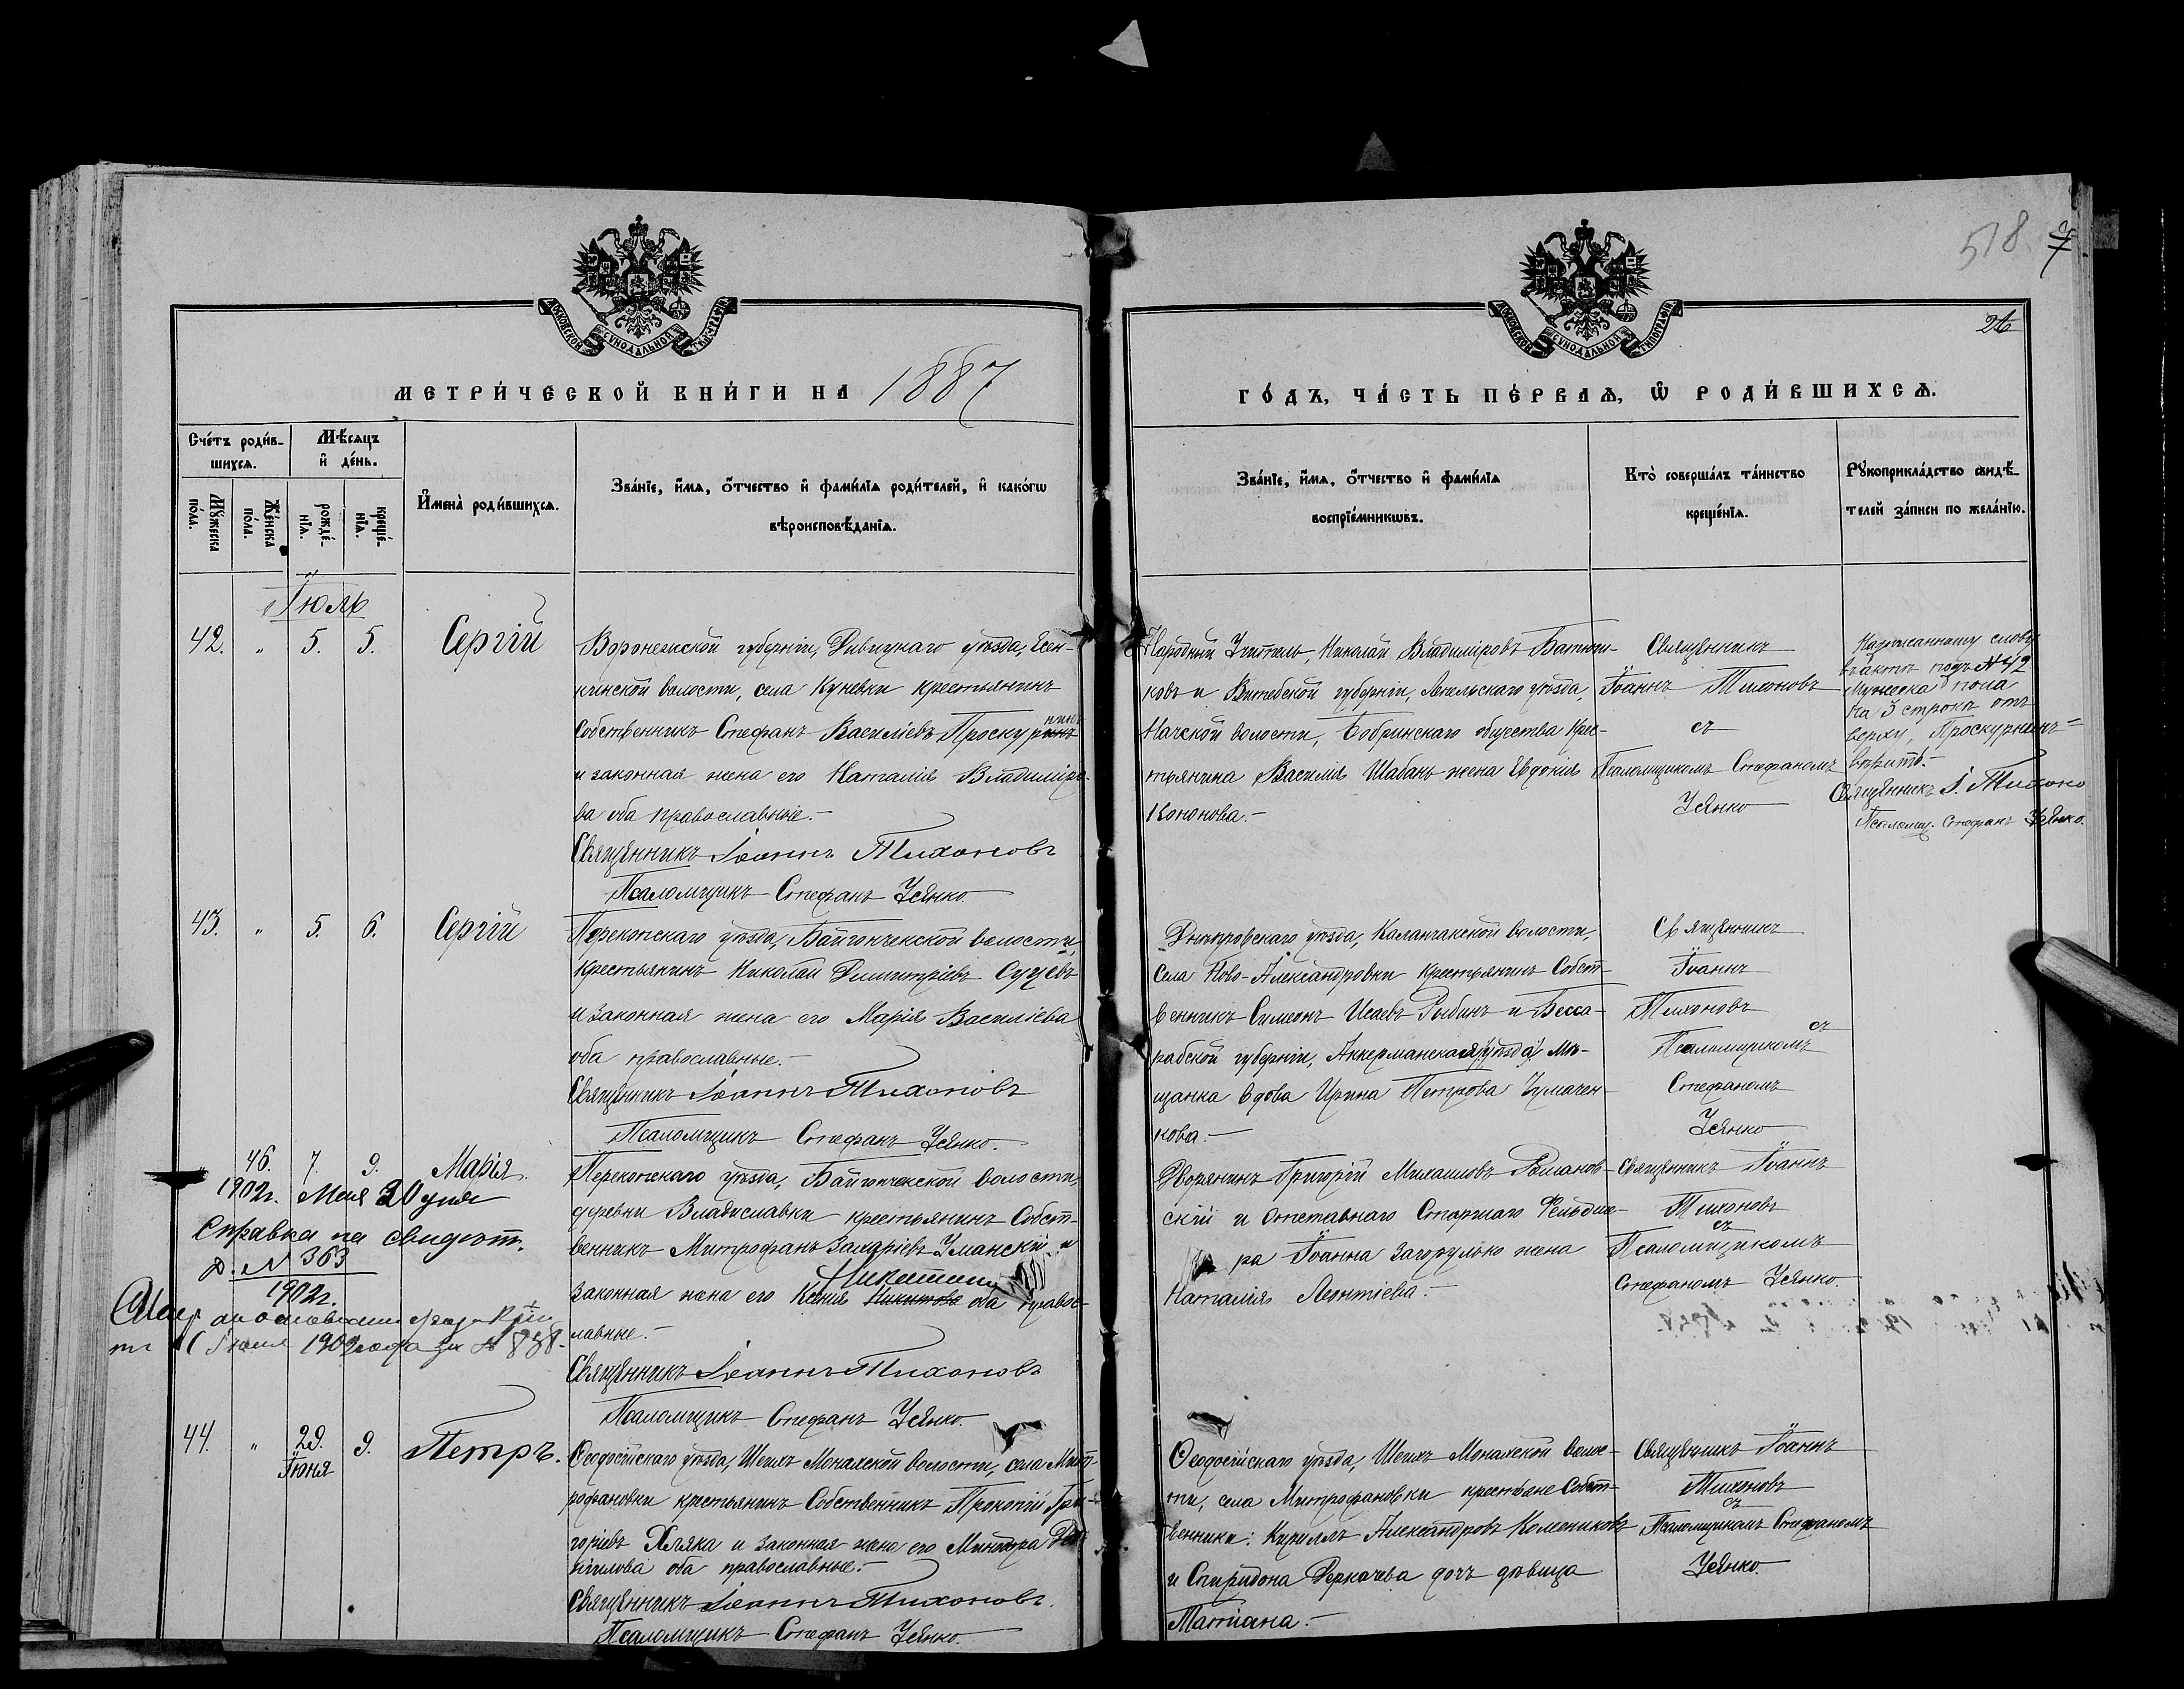 518
26
МОСКОВСКОЙ СѴНОДАЛЬНОЙ ТИПОГРАФІИ
МОСКОВСКОЙ СѴНОДАЛЬНОЙ ТИПОГРАФІИ
МЕТРИ́ЧЕСКОЙ КНИ́ГИ НА 1887
ГО́ДЪ, ЧА́СТЬ ПЕ́РВАѦ, Ѽ РОДИ́ВШИХСѦ.
Сче́тъ роди́в-
шихсѧ.
Мꙋ́жеска по́ла.
Же́нска по́ла.
Мѣ́сѧцъ
и҆ де́нь.
рожде́-
нїѧ.
креще́-
нїѧ.
И҆мена̀ роди́вшихсѧ.
Зва́нїе, и҆́мѧ, ѻ҆́тчество и҆ фами́лїѧ роди́телей, и҆ како́гѡ
вѣроисповѣ́данїѧ.
Зва́нїе, и҆́мѧ, ѻ҆́тчество и҆ фами́лїѧ
воспрїе́мникѡвъ.
Кто̀ соверша́лъ та́инство
креще́нїѧ.
Рꙋкоприкла́дство свидѣ́-
телей за́писи по жела́нїю.
Іюль
42. " 5. 5. Сергій
Воронежской губерніи, уѣзда,
волости, села Куневки крестьянинъ
Собственникъ Стефанъ Василіевъ Проскурнинъ
и законная жена его Наталія Владиміро-
ва оба православные.-
Священникъ Іоаннъ Тихоновъ
Псаломщикъ Стефанъ Усѣнко.
Народный Учитель, Николай Владиміровъ
ковъ и Витебской губерніи, Лепельскаго уѣзда,
волости, Бобринскаго общества Крес-
тьянина Василія Шабанъ жена Евдокія
Кононова.-
Священникъ
Іоаннъ Тихоновъ
съ
Псаломщикомъ Стефаномъ
Усѣнко
слову
въ актѣ подъ №42
мужеска пола
На 3 строкѣ отъ
верху, Проскурнинъ=
вѣрить.-
Священникъ І. Тихоно
Псаломщ. Стефанъ Усѣнко.
43. " 5. 6. Сергій
Перекопскаго уѣзда, Байгончекской волости,
крестьянинъ Николай Димитріевъ Сущевъ
и законная жена его Марія Василіева
оба православные.-
Священникъ Іоаннъ Тихоновъ
Псаломщикъ Стефанъ Усѣнко.-
Днѣпровскаго уѣзда, Каланчакской волости,
Села Ново-Александровки крестьянинъ Собст-
венникъ Симеонъ Исаевъ Рыбинъ и Бесса-
рабской губерніи, Аккерманскаго уѣзда, мѣ-
щанка вдова Ирина Петрова Чумачен-
кова.-
Священникъ
Іоаннъ
Тихоновъ
съ
Псаломщикомъ
Стефаномъ
Усѣнко
" 46. 7. 9. Марія.
Перекопскаго уѣзда, Байгончекской волости,
деревни Владиславки крестьянинъ Собст-
венникъ Митрофанъ Захаріевъ Уманскій и
Никитина
законная жена его Ксенія Никитова оба правос-
лавные.-
Священникъ Іоаннъ Тихоновъ
Псаломщикъ Стефанъ Усѣнко.
Дворянинъ Григорій Михаиловъ Романов-
скій и Отставнаго Старшаго Фельдше-
ра Іоанна Загорулько жена
Наталія Леонтіева.-
Священникъ Іоаннъ
Тихоновъ
съ
Псаломщикомъ
Стефаномъ Усѣнко.
1902г. Мая 20 дня
Справка на свидѣт.
Д. № 363
1902г.
Іюля 1902 года за № 838-
44. " 29. 9. Петръ.
Іюня
Ѳеодосійскаго уѣзда, Шейхъ Монахской волости, села Мит-
рофановки крестьянинъ Собственникъ Прокопій Гри-
горіевъ Хижка и законная жена его
оба православные.-
Священникъ Іоаннъ Тихоновъ.
Псаломщикъ Стефанъ Усѣнко.
Ѳеодосійскаго уѣзда, Шейхъ Монахской волос-
ти, села Митрофановки крестьяне Собст-
венники: Кириллъ Александровъ Колесниковъ
и Спиридона Деркачева дочь дѣвица
Татіана.-
Священникъ Іоаннъ
Тихоновъ
съ
Псаломщикомъ Стефаномъ
Усѣнко.